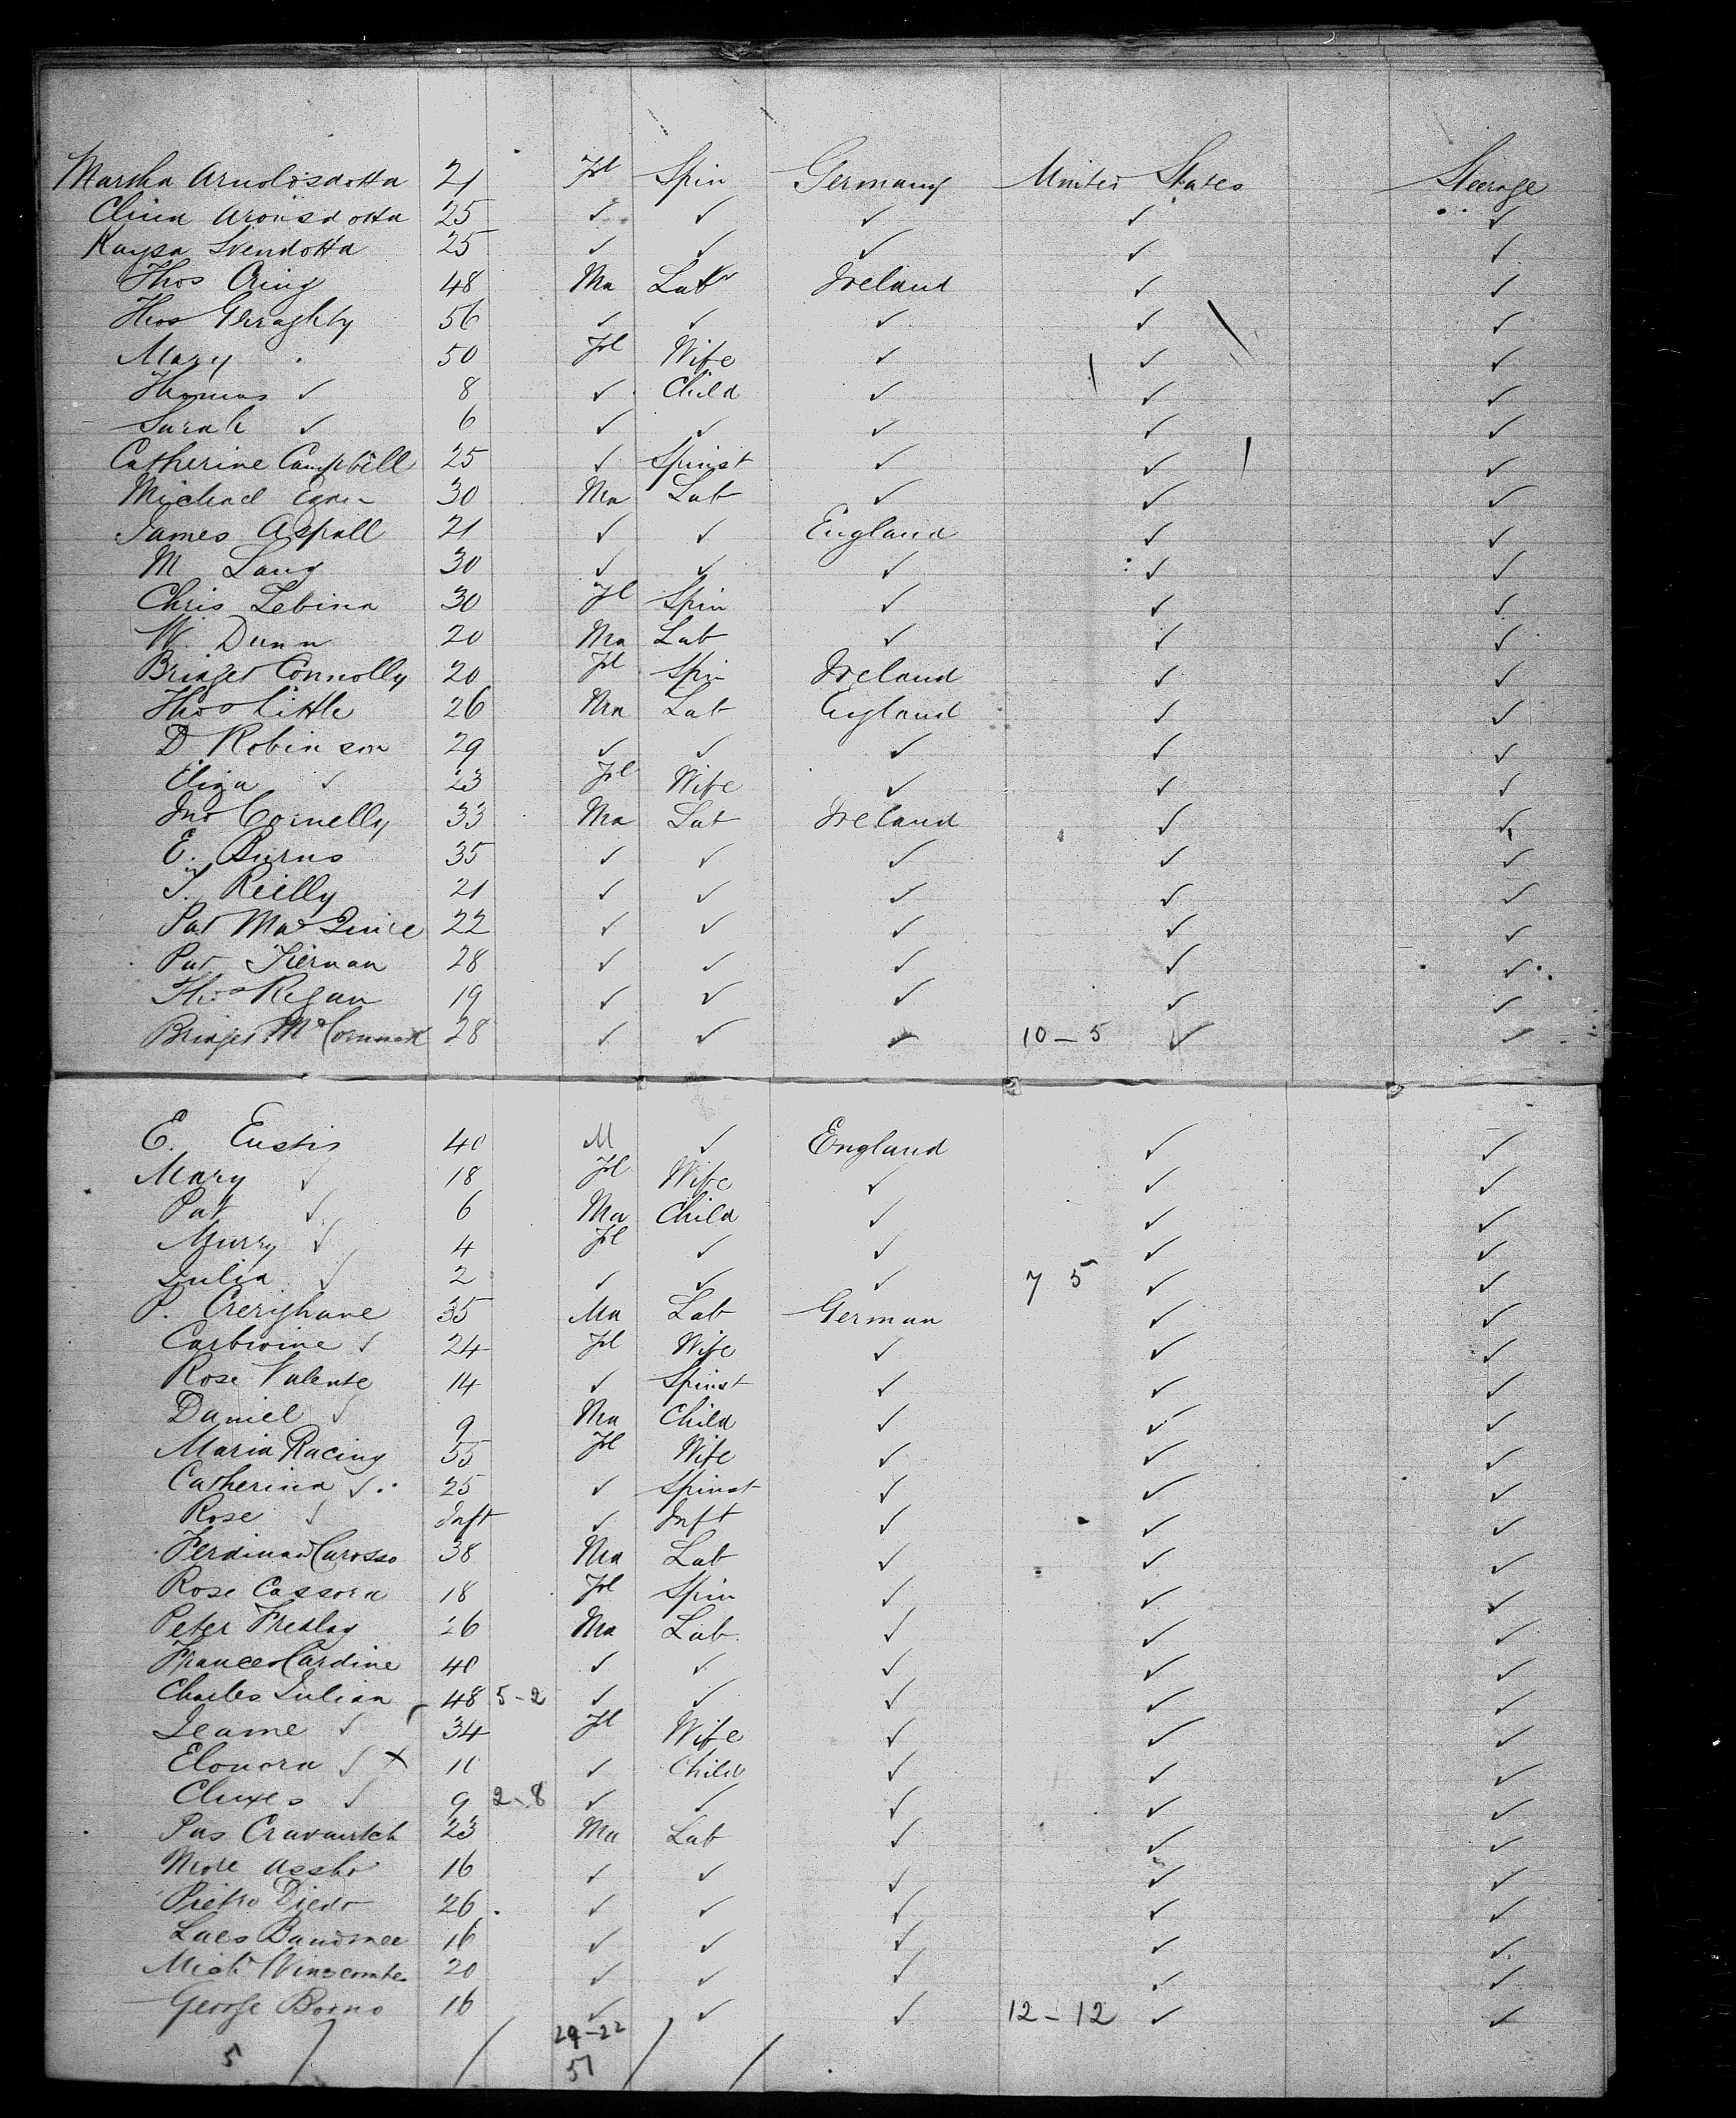 Marsha Arnoldsdotta 21 Fl Spin Germany United States Steerage
Clina Aronsdotta 25 ✓ ✓ ✓ ✓ ✓
Kaysa Svendotta 25 ✓ ✓ ✓ ✓ ✓
Thos Cring 48 Ma Labr Ireland ✓ ✓
Thos Gerraghty 56 ✓ ✓ ✓ ✓ ✓
Mary 50 Fl Wife ✓ ✓ ✓
Thomas ✓ 8 ✓ Child ✓ ✓ ✓
Sarah ✓ 6 ✓ ✓ ✓ ✓ ✓
Catherine Campbell 25 ✓ Spinst ✓ ✓ ✓
Michael Egan 30 Ma Lab ✓ ✓ ✓
James Aspall 21 ✓ ✓ England ✓ ✓
M Lang 30 ✓ ✓ ✓ ✓ ✓
Chris Lebina 30 Fl Spin ✓ ✓ ✓
W. Dunn 20 Ma Lab ✓ ✓ ✓
Bridget Connolly 20 Fl Spin Ireland ✓ ✓
Thos Little 26 Ma Lab England ✓ ✓
D Robinson 29 ✓ ✓ ✓ ✓ ✓
Eliza ✓ 23 Fl Wife ✓ ✓ ✓
Jno Cornelly 33 Ma Lab Ireland ✓ ✓
E. Burns 35 ✓ ✓ ✓ ✓ ✓
T. Reilly 21 ✓ ✓ ✓ ✓ ✓
Pat 22 ✓ ✓ ✓ ✓ ✓
Pat Tiernan 28 ✓ ✓ ✓ ✓ ✓
Thos Regan 19 ✓ ✓ ✓ ✓ ✓
Bridget McCormack 28 ✓ ✓ ✓ 10 - 5 ✓ ✓
E. Eustis 40 M ✓ England ✓ ✓
Mary ✓ 18 Fl Wife ✓ ✓ ✓
Pat ✓ 6 Ma Child ✓ ✓ ✓
Murry ✓ 4 Fl ✓ ✓ ✓ ✓
Julia ✓ 2 ✓ ✓ ✓ 7 5 ✓ ✓
P. Crerighane 35 Ma Lab German ✓ ✓
Carbroine ✓ 24 Fl Wife ✓ ✓ ✓
Rose Valente 14 ✓ Spinst ✓ ✓ ✓
Daniel ✓ 9 Ma Child ✓ ✓ ✓
Maria Racing 55 Fl Wife ✓ ✓ ✓
Catherina ✓ 25 ✓ Spinst ✓ ✓ ✓
Rose ✓ Inft ✓ Inft ✓ ✓ ✓
Ferdinand Carosso 38 Ma Lab ✓ ✓ ✓
Rose Cassora 18 Fl Spin ✓ ✓ ✓
Peter 26 Ma Lab ✓ ✓ ✓
Frances Cardine 40 ✓ ✓ ✓ ✓ ✓
Charles Julian 48 5-2 ✓ ✓ ✓ ✓ ✓
Jeame ✓ 34 Fl Wife ✓ ✓ ✓
Elonora ✓ X 11 ✓ Child ✓ ✓ ✓
✓ 9 2-8 ✓ ✓ ✓ ✓ ✓
Pas 23 Ma Lab ✓ ✓ ✓
16 ✓ ✓ ✓ ✓ ✓
Pietro Diedo 26 ✓ ✓ ✓ ✓ ✓
16 ✓ ✓ ✓ ✓ ✓
Winscombe 20 ✓ ✓ ✓ ✓ ✓
George Borno 16 ✓ ✓ ✓ 12 - 12 ✓ ✓
29-22
5 / / 51 / /